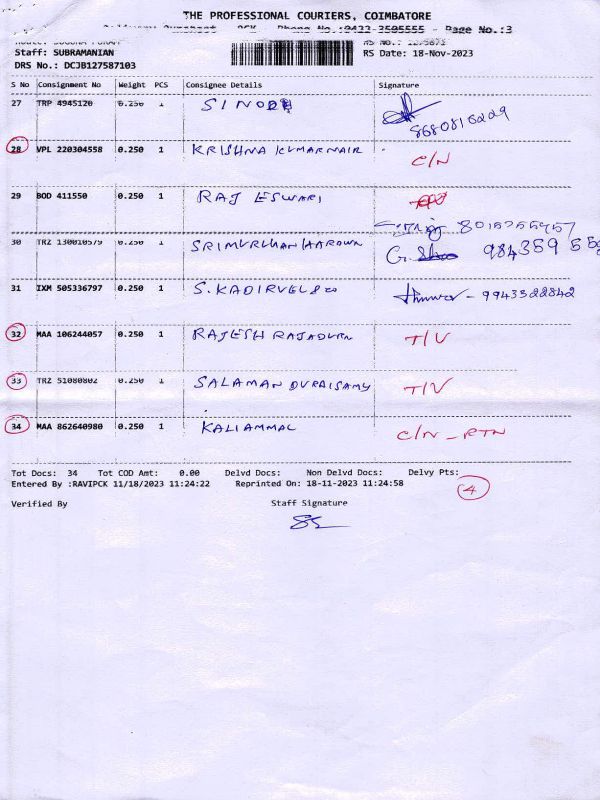 THE PROFESSIONAL COURIERS, COIMBATORE
Phone No.:0422-3505555 - Page No.:3
Staff: SUBRAMANIAN
RS Date: 18-Nov-2023
DRS No.: DCJB127587103
S No Consignment No Weight PCS Consignee Details Signature
27 TRP 4945120 0.250 1 SINODH
8680816229
28 VPL 220304558 0.250 1 KRISHNA KUMAR NAIR C/N
29 BOD 411550 0.250 1 RAJ ESWARI
30 TRZ 130010579 0.250 1
31 IXM 505336797 0.250 1 S. KADIRVEL & co - 9943522842
32 MAA 106244057 0.250 1 RAJESH T/V
33 TRZ 51080802 0.250 1 SALAMAN DURAISAMY T/V
34 MAA 862640980 0.250 1 KALIAMMAL C/N - RTN
Tot Docs: 34 Tot COD Amt: 0.00 Delvd Docs: Non Delvd Docs: Delvy Pts:
Entered By :RAVIPCK 11/18/2023 11:24:22 Reprinted On: 18-11-2023 11:24:58
4
Verified By Staff Signature